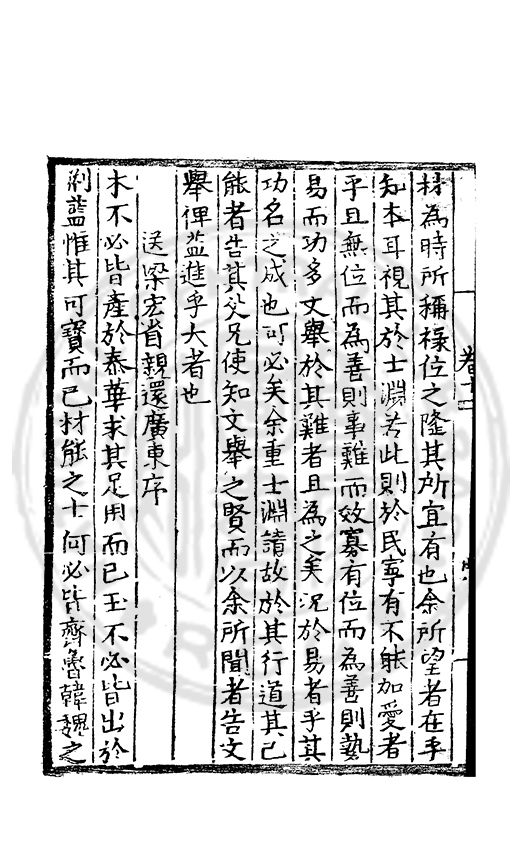 材為時所稱祿位之隆其所宜有也余所望者在乎
知本耳視其於士淵若此則於民寧有不能加愛者
乎且無位而為善則事難而效寡有位而為善則埶
易而功多文舉於其難者且為之矣況於易者乎其
功名之成也可必矣余重士淵請故於其行道其已
能者告其父兄使知文舉之賢而以余所聞者告文
舉俾益進乎大者也
送梁宏省親還廣東序
木不必皆產於泰華求其足用而已玉不必皆出於
荊藍惟其可寶而已材能之士何必皆齊魯韓魏之